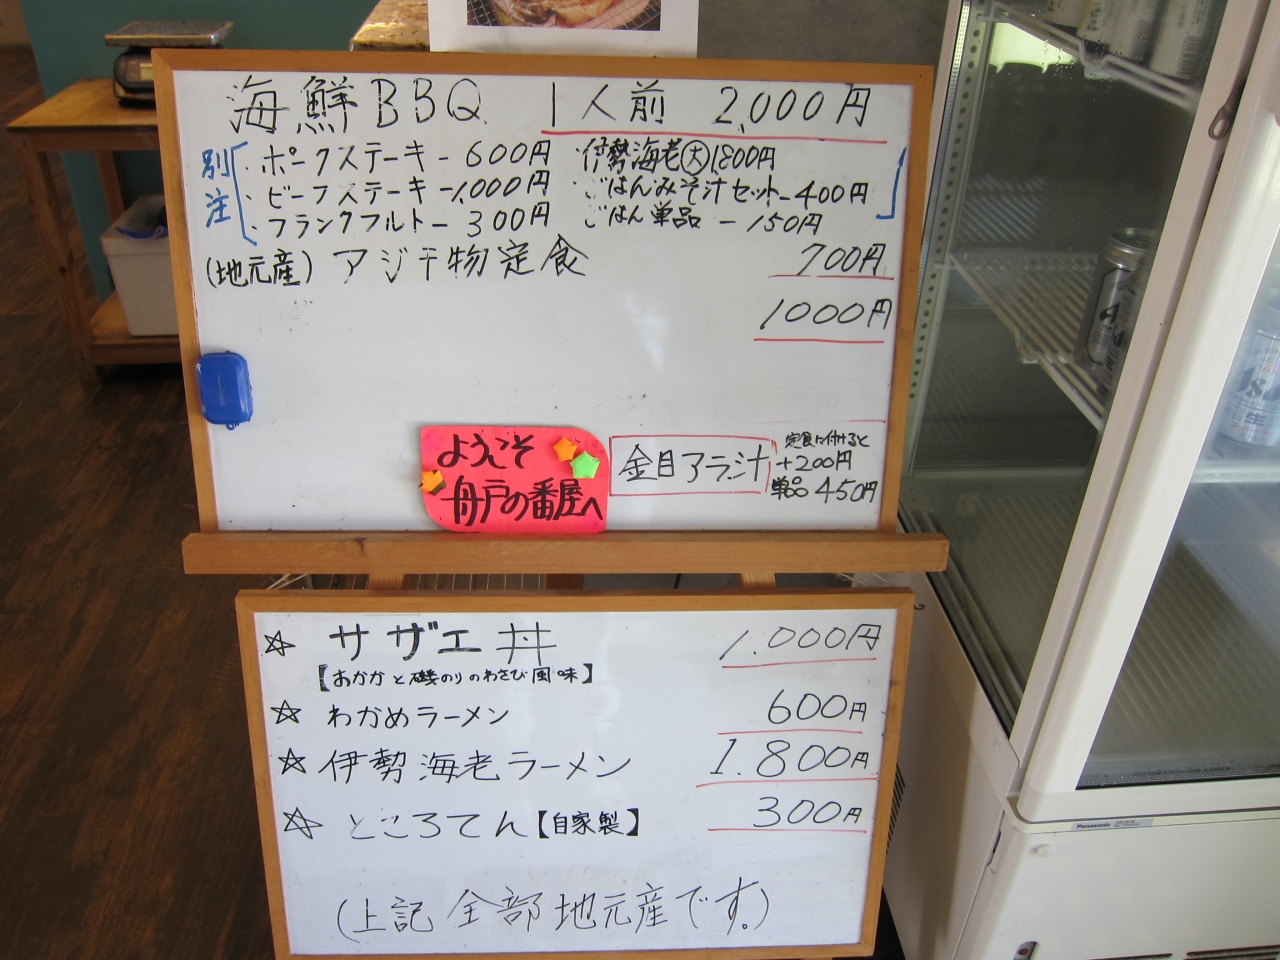 海鮮BBQ 1人前 2,000円
別注
・ポークステーキ - 600円
・ビーフステーキ - 1,000円
・フランクフルト - 300円
・伊勢海老(大)1,800円
・ごはんみそ汁セット - 400円
・ごはん単品 - 150円
(地元産) アジ干物定食 700円
1000円
ようこそ
舟戸の番屋へ
金目アラ汁
定食に付けると
+200円
単品 450円
☆ サザエ丼 1.000円
【おかかと磯のりのわさび風味】
☆ わかめラーメン 600円
☆ 伊勢海老ラーメン 1.800円
☆ ところてん【自家製】 300円
(上記全部地元産です。)
Panasonic